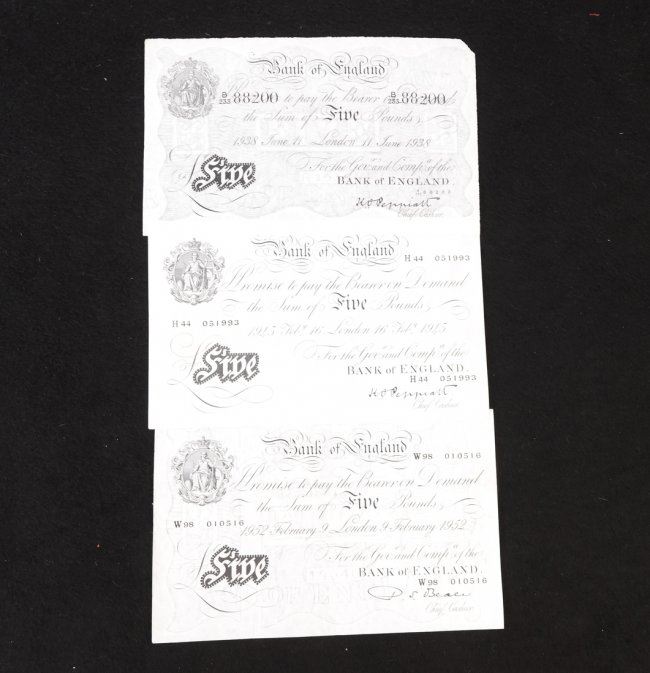 Bank of England
B/255 88200 to pay the Bearer on B/255 88200
the Sum of Five Pounds,
1938 June 11 London 11 June 1938
For the Govr. and Compa. of the
BANK of ENGLAND.
£Five
K O Peppiatt
Chief Cashier.
Bank of England
H44 051993
I Promise to pay the Bearer on Demand
the Sum of Five Pounds,
H44 051993
1945 Feby. 16 London 16 Feby. 1945
For the Govr. and Compa. of the
£Five
BANK of ENGLAND.
H44 051993
K O Peppiatt
Chief Cashier
Bank of England
W98 010516
I Promise to pay the Bearer on Demand
the Sum of Five Pounds,
W98 010516
1952 February 9 London 9 February 1952
For the Govr. and Compa. of the
£Five
BANK of ENGLAND.
W98 010516
P. S. Beale
Chief Cashier